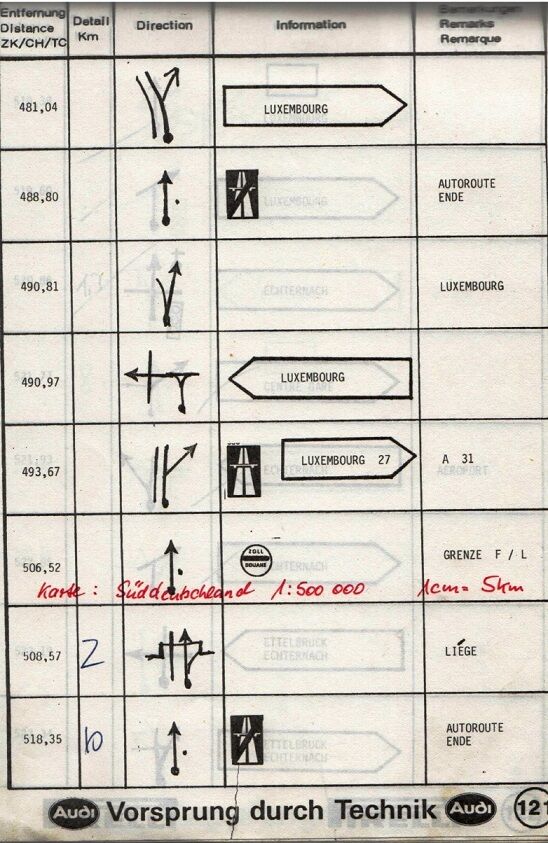 Entfernung
Distance
ZK/CH/TC
Detail
Km
Direction
Information
Bemerkungen
Remarks
Remarque
481,04
LUXEMBOURG
488,80
AUTOROUTE
ENDE
490,81
LUXEMBOURG
490,97
LUXEMBOURG
493,67
LUXEMBOURG 27
A 31
506,52
ZOLL
DOUANE
GRENZE F / L
Karte : Süddeutschland 1:500 000 1cm = 5km
508,57
2
LIÉGE
518,35
10
AUTOROUTE
ENDE
Audi Vorsprung durch Technik Audi 121